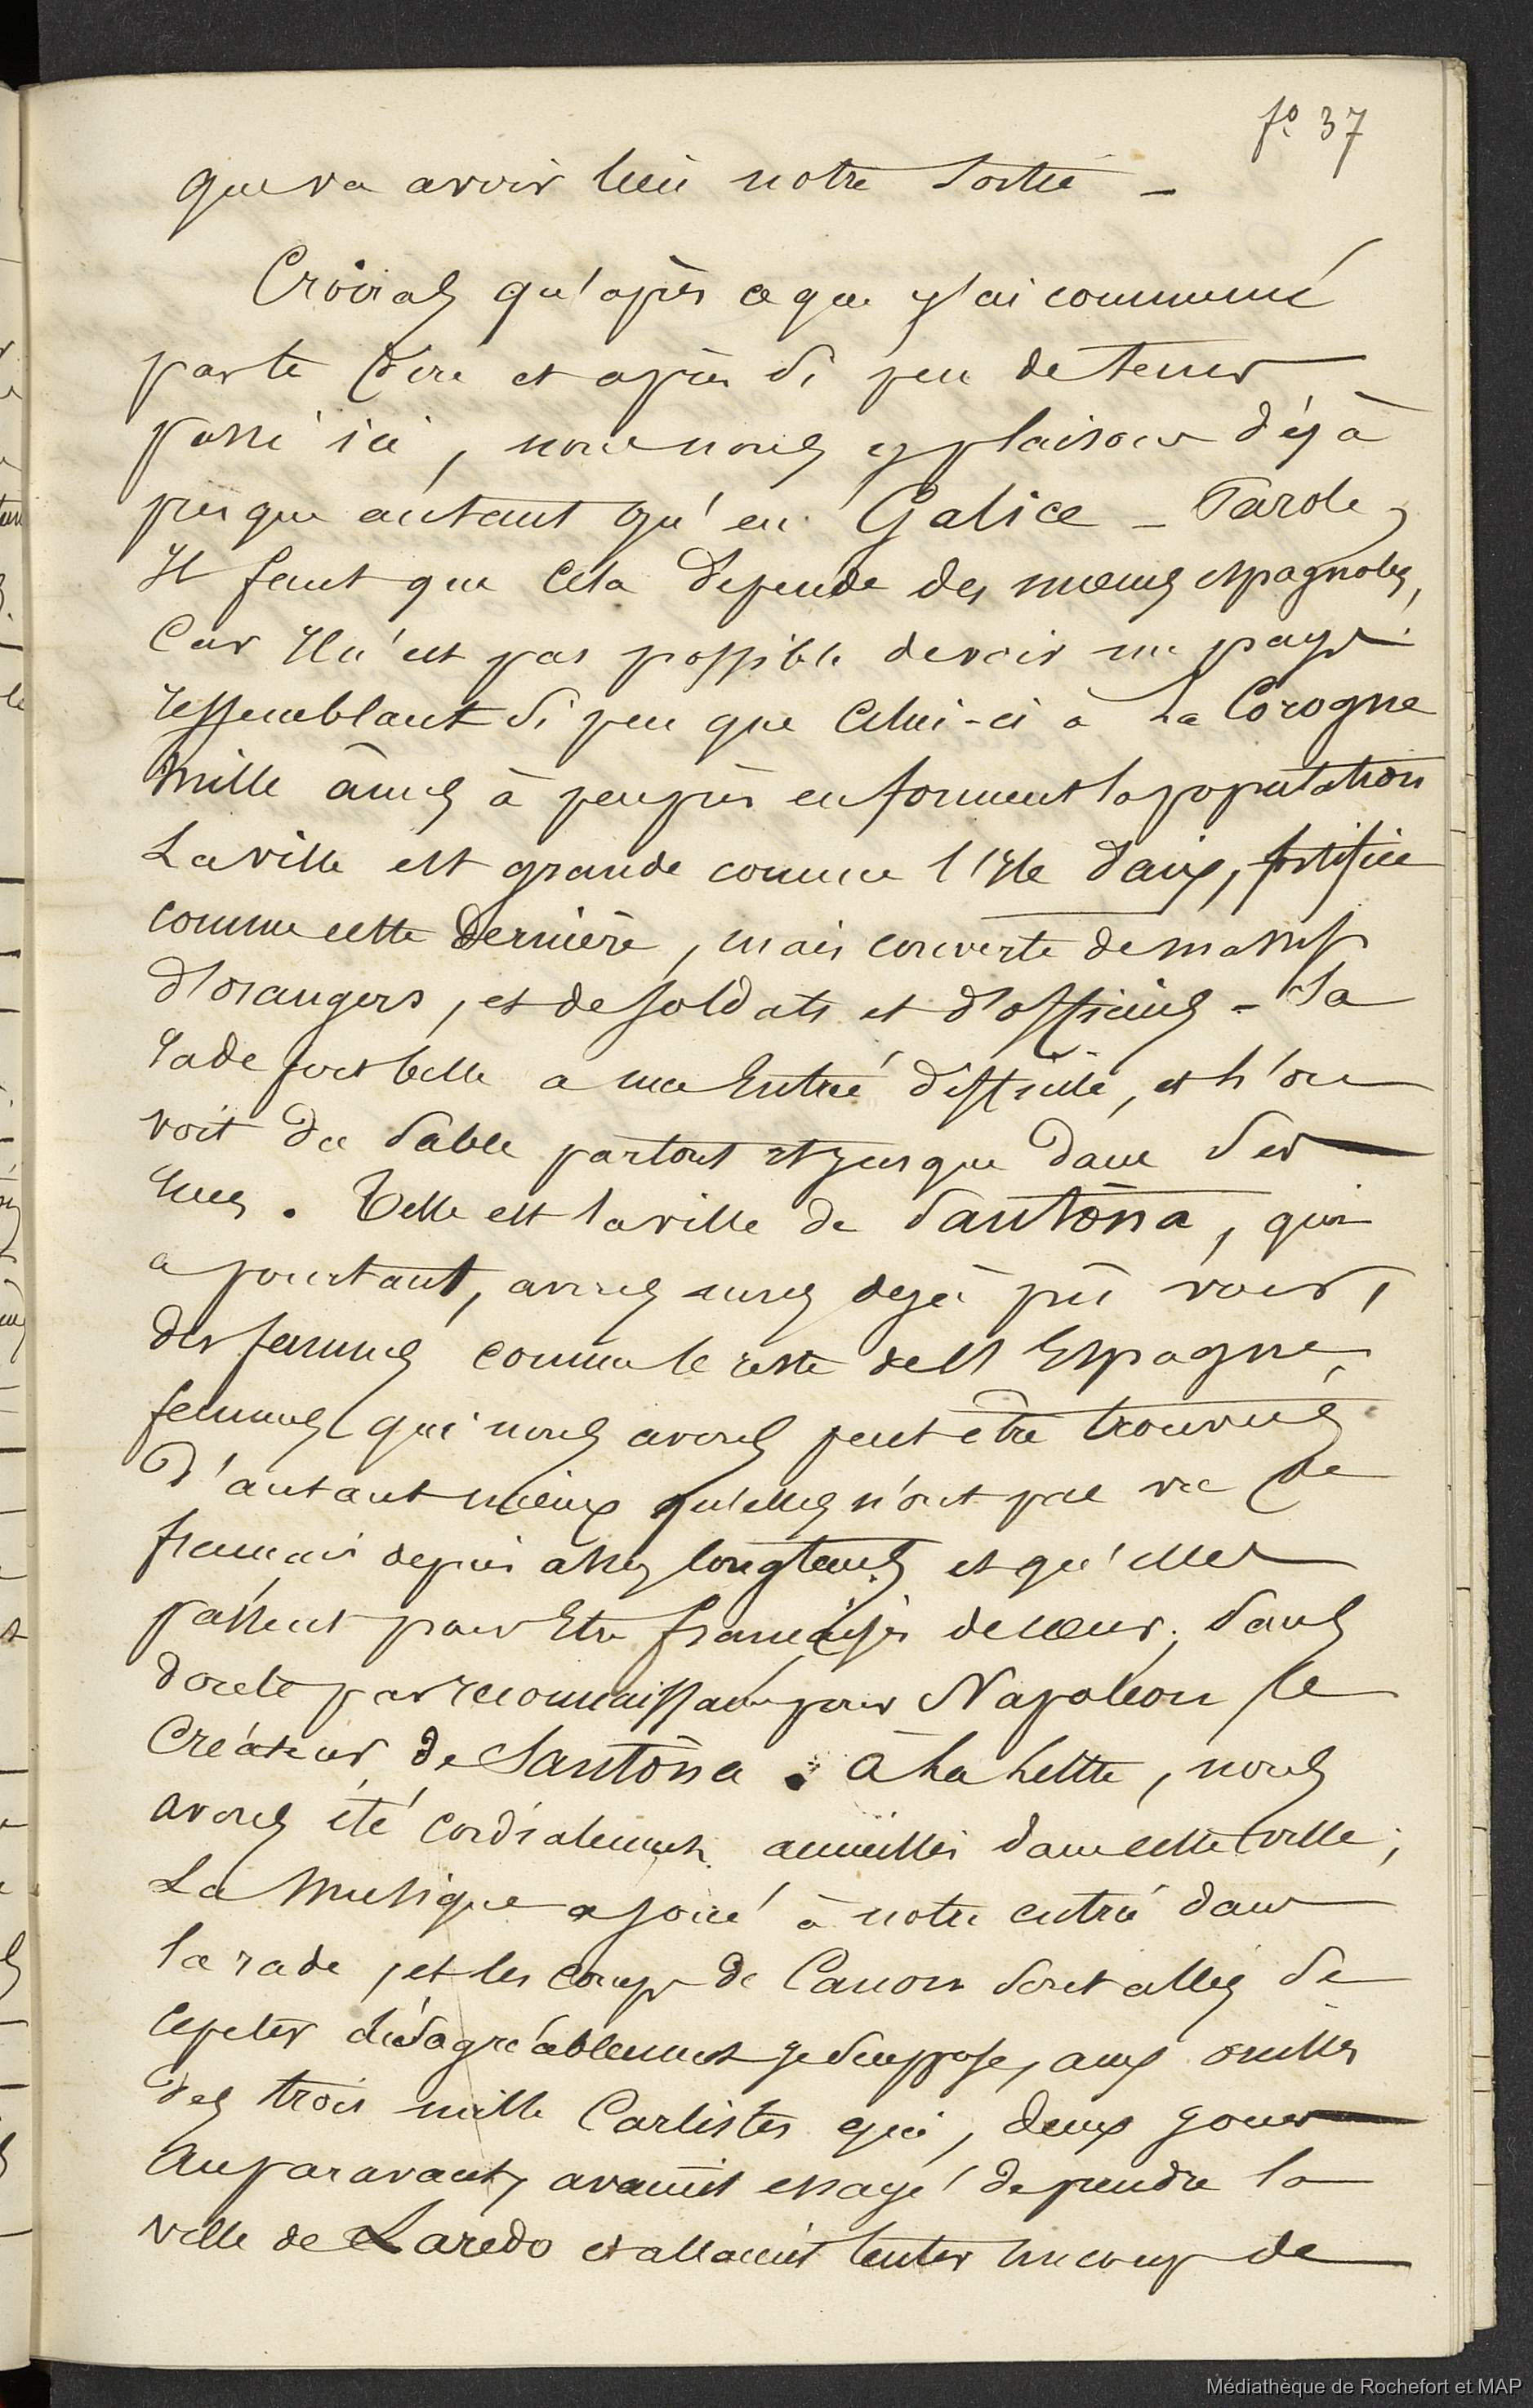 fo 37
que va avoir lieu notre sortie -
Croirais qu'après ce que j'ai commencé
par te dire et après si peu de tems
passé ici, nous nous y plaisons déjà
presque autant qu'en Galice - Parole,
Il faut que cela dépende des mœurs espagnoles,
Car Il n'est pas possible de voir un pays
ressemblant si peu que celui-ci à La Corogne
Mille âmes à peu près en forment la population
La ville est grande comme l'Ile d'aix, fortifiée
comme cette dernière, mais couverte de massifs
d'orangers, et de soldats et d'officiers - Sa
rade fort belle a une Entrée difficile, et l'on
voit du sable partout et jusque dans ses
rues. Telle est la ville de Santôna, qui
a pourtant, avons nous déjà pû voir,
des femmes comme le reste de l'Espagne,
femmes que nous avons peut être trouvées
d'autant mieux qu'elles n'ont pas vu de
français depuis assez longtemps et qu'elles
passent pour Etre françaises de cœur, sans
doute par reconnaissance pour Napoléon le
Créateur de Santôna. à La lettre, nous
avons été cordialement accueillis dans cette ville;
La Musique a joué à notre entrée dans
la rade, et les coups de Canon sont allés se
répéter désagréablement je suppose, aux oreilles
des trois mille Carlistes qui, deux jours
Auparavant, avaient essayé de prendre la
ville de Laredo et allaient tenter un coup de
Médiathèque de Rochefort et MAP